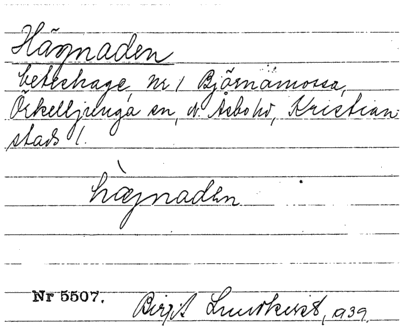 Hägnaden
beteshage, nr 1 Björnamossa,
Örkelljunga sn, N. Åsbo hd, Kristian-
stads l.
hàgnaden
Nr 5507.
Birgit Lundkvist, 1939.